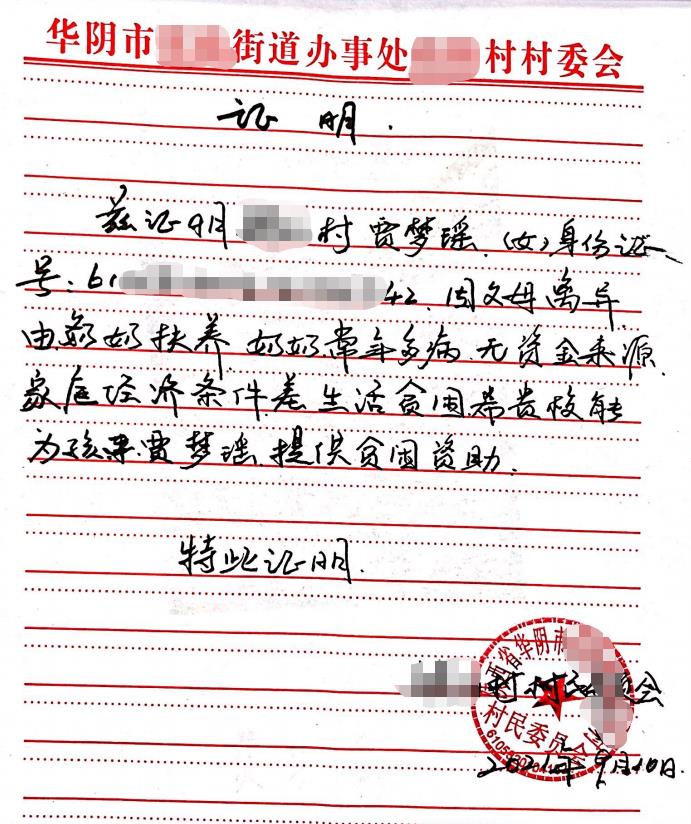 华阴市 街道办事处 村村委会
证 明.
兹证明 村贾梦瑶.(女)身份证
号:61 42.因父母离异
由奶奶扶养.奶奶常年多病.无资金来源.
家庭经济条件差生活贫困希贵校能
为孩子贾梦瑶.提供贫困资助.
特此证明.
村村民委员会
省华阴市
村民委员会
2021年9月10日.